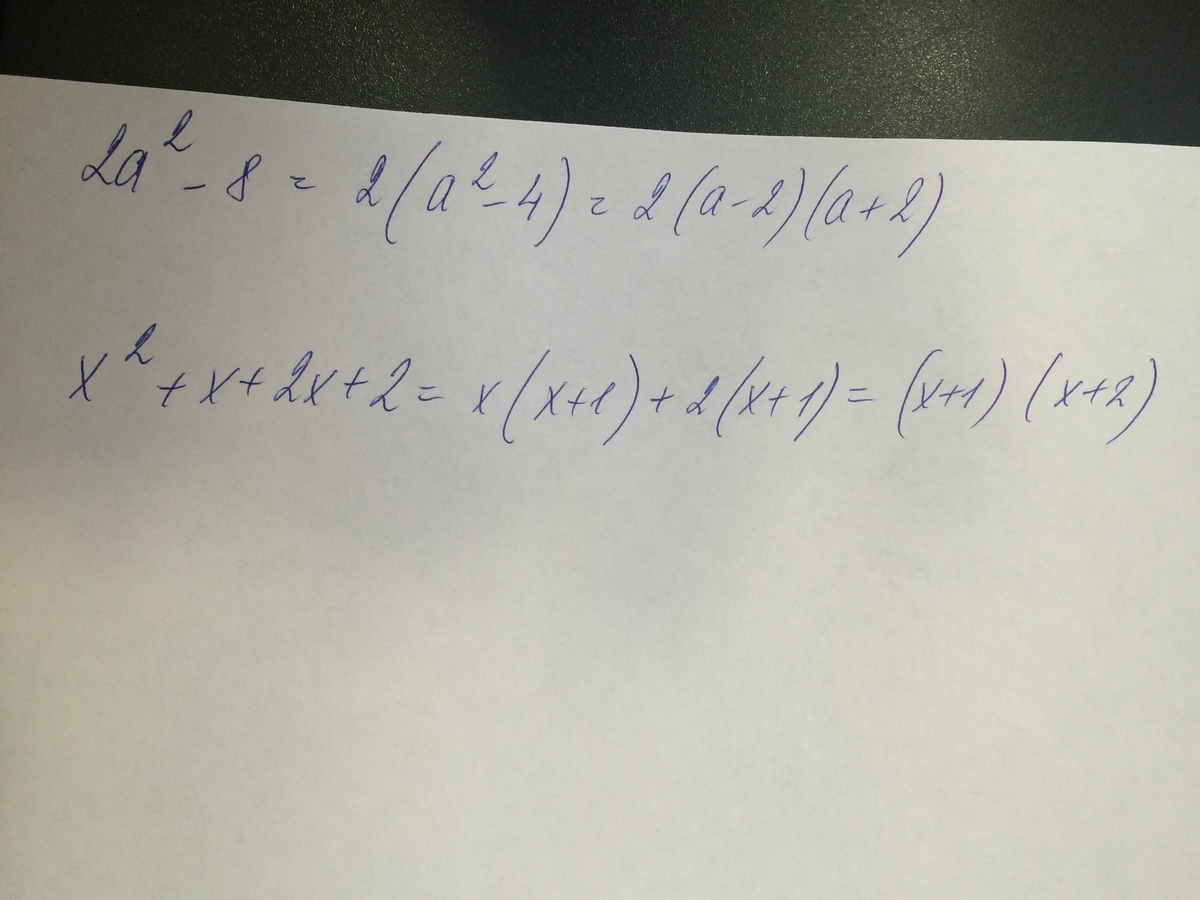 2a² - 8 = 2(a² - 4) = 2(a-2)(a+2)
x² + x + 2x + 2 = x(x+1) + 2(x+1) = (x+1)(x+2)